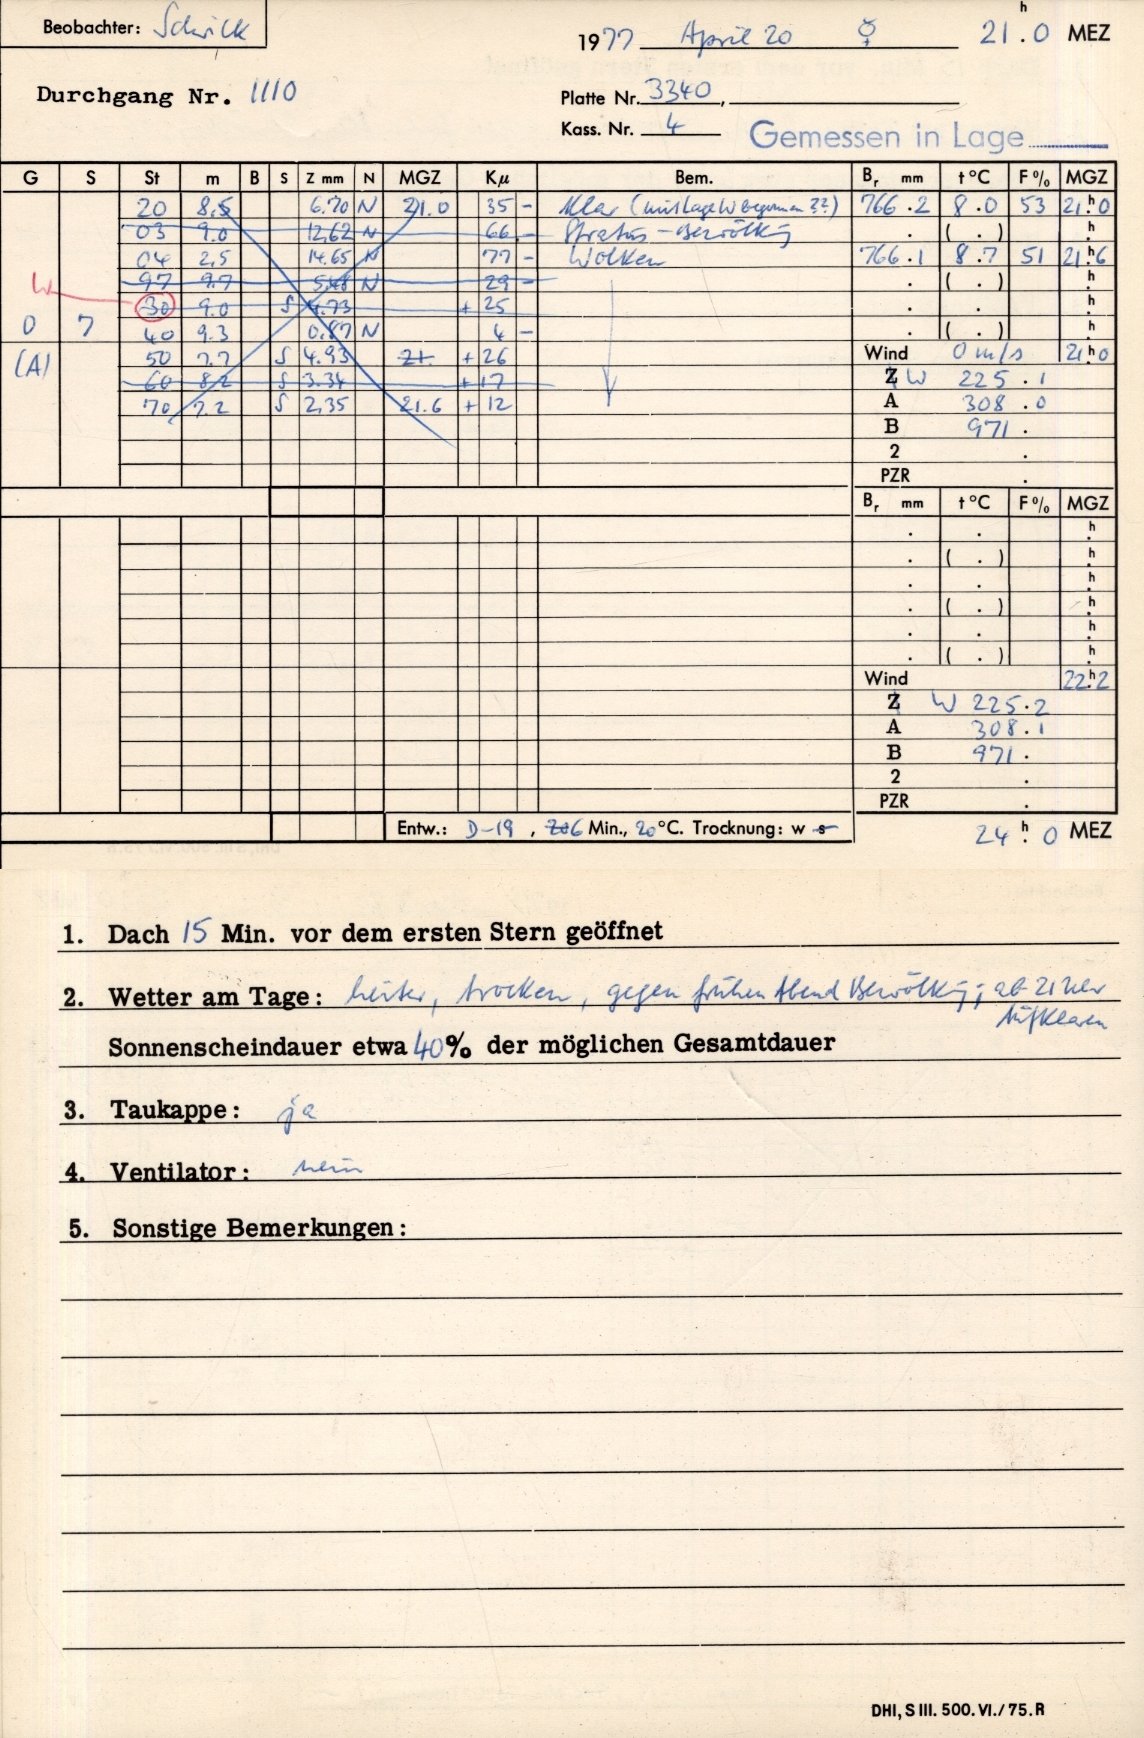 Beobachter: Schilk
1977 April 20 ☿ 21 h . 0 MEZ
Durchgang Nr. 1110
Platte Nr. 3340,
Kass. Nr. 4
Gemessen in Lage
G S St m B S Z mm N MGZ Kμ Bem. Br mm t °C F % MGZ
20 8.5 6.70 N 21.0 35 - Klar (mit Lage W begonnen ??) 766.2 8.0 53 21 h 0
03 9.0 12.62 N 66 - Stratus-Bewölkg ( . ) h
04 2.5 14.65 N 77 - Wolken 766.1 8.7 51 21 h 6
W 97 9.7 5.48 N 29 - ( . ) h
30 9.0 S 4.73 + 25 h
0 7 40 9.3 0.87 N 4 - ( . ) h
(A) 50 7.7 S 4.93 21. + 26 Wind 0 m/s 21 h 0
60 8.2 S 3.34 + 17 Z W 225.1
70 7.2 S 2.35 21.6 + 12 A 308.0
B 971.
2 .
PZR .
Br mm t °C F % MGZ
. . h
. ( . ) h
. . h
. ( . ) h
. . h
. ( . ) h
Wind 22 h 2
Z W 225.2
A 308.1
B 971.
2 .
PZR .
Entw.: D-19, 6 Min., 20 °C. Trocknung: w s
24 h . 0 MEZ
1. Dach 15 Min. vor dem ersten Stern geöffnet
2. Wetter am Tage: heiter, trocken, gegen frühen Abend Bewölkg; ab 21 Uhr
Aufklaren
Sonnenscheindauer etwa 40% der möglichen Gesamtdauer
3. Taukappe: ja
4. Ventilator: nein
5. Sonstige Bemerkungen:
DHI, S III. 500. VI./75. R